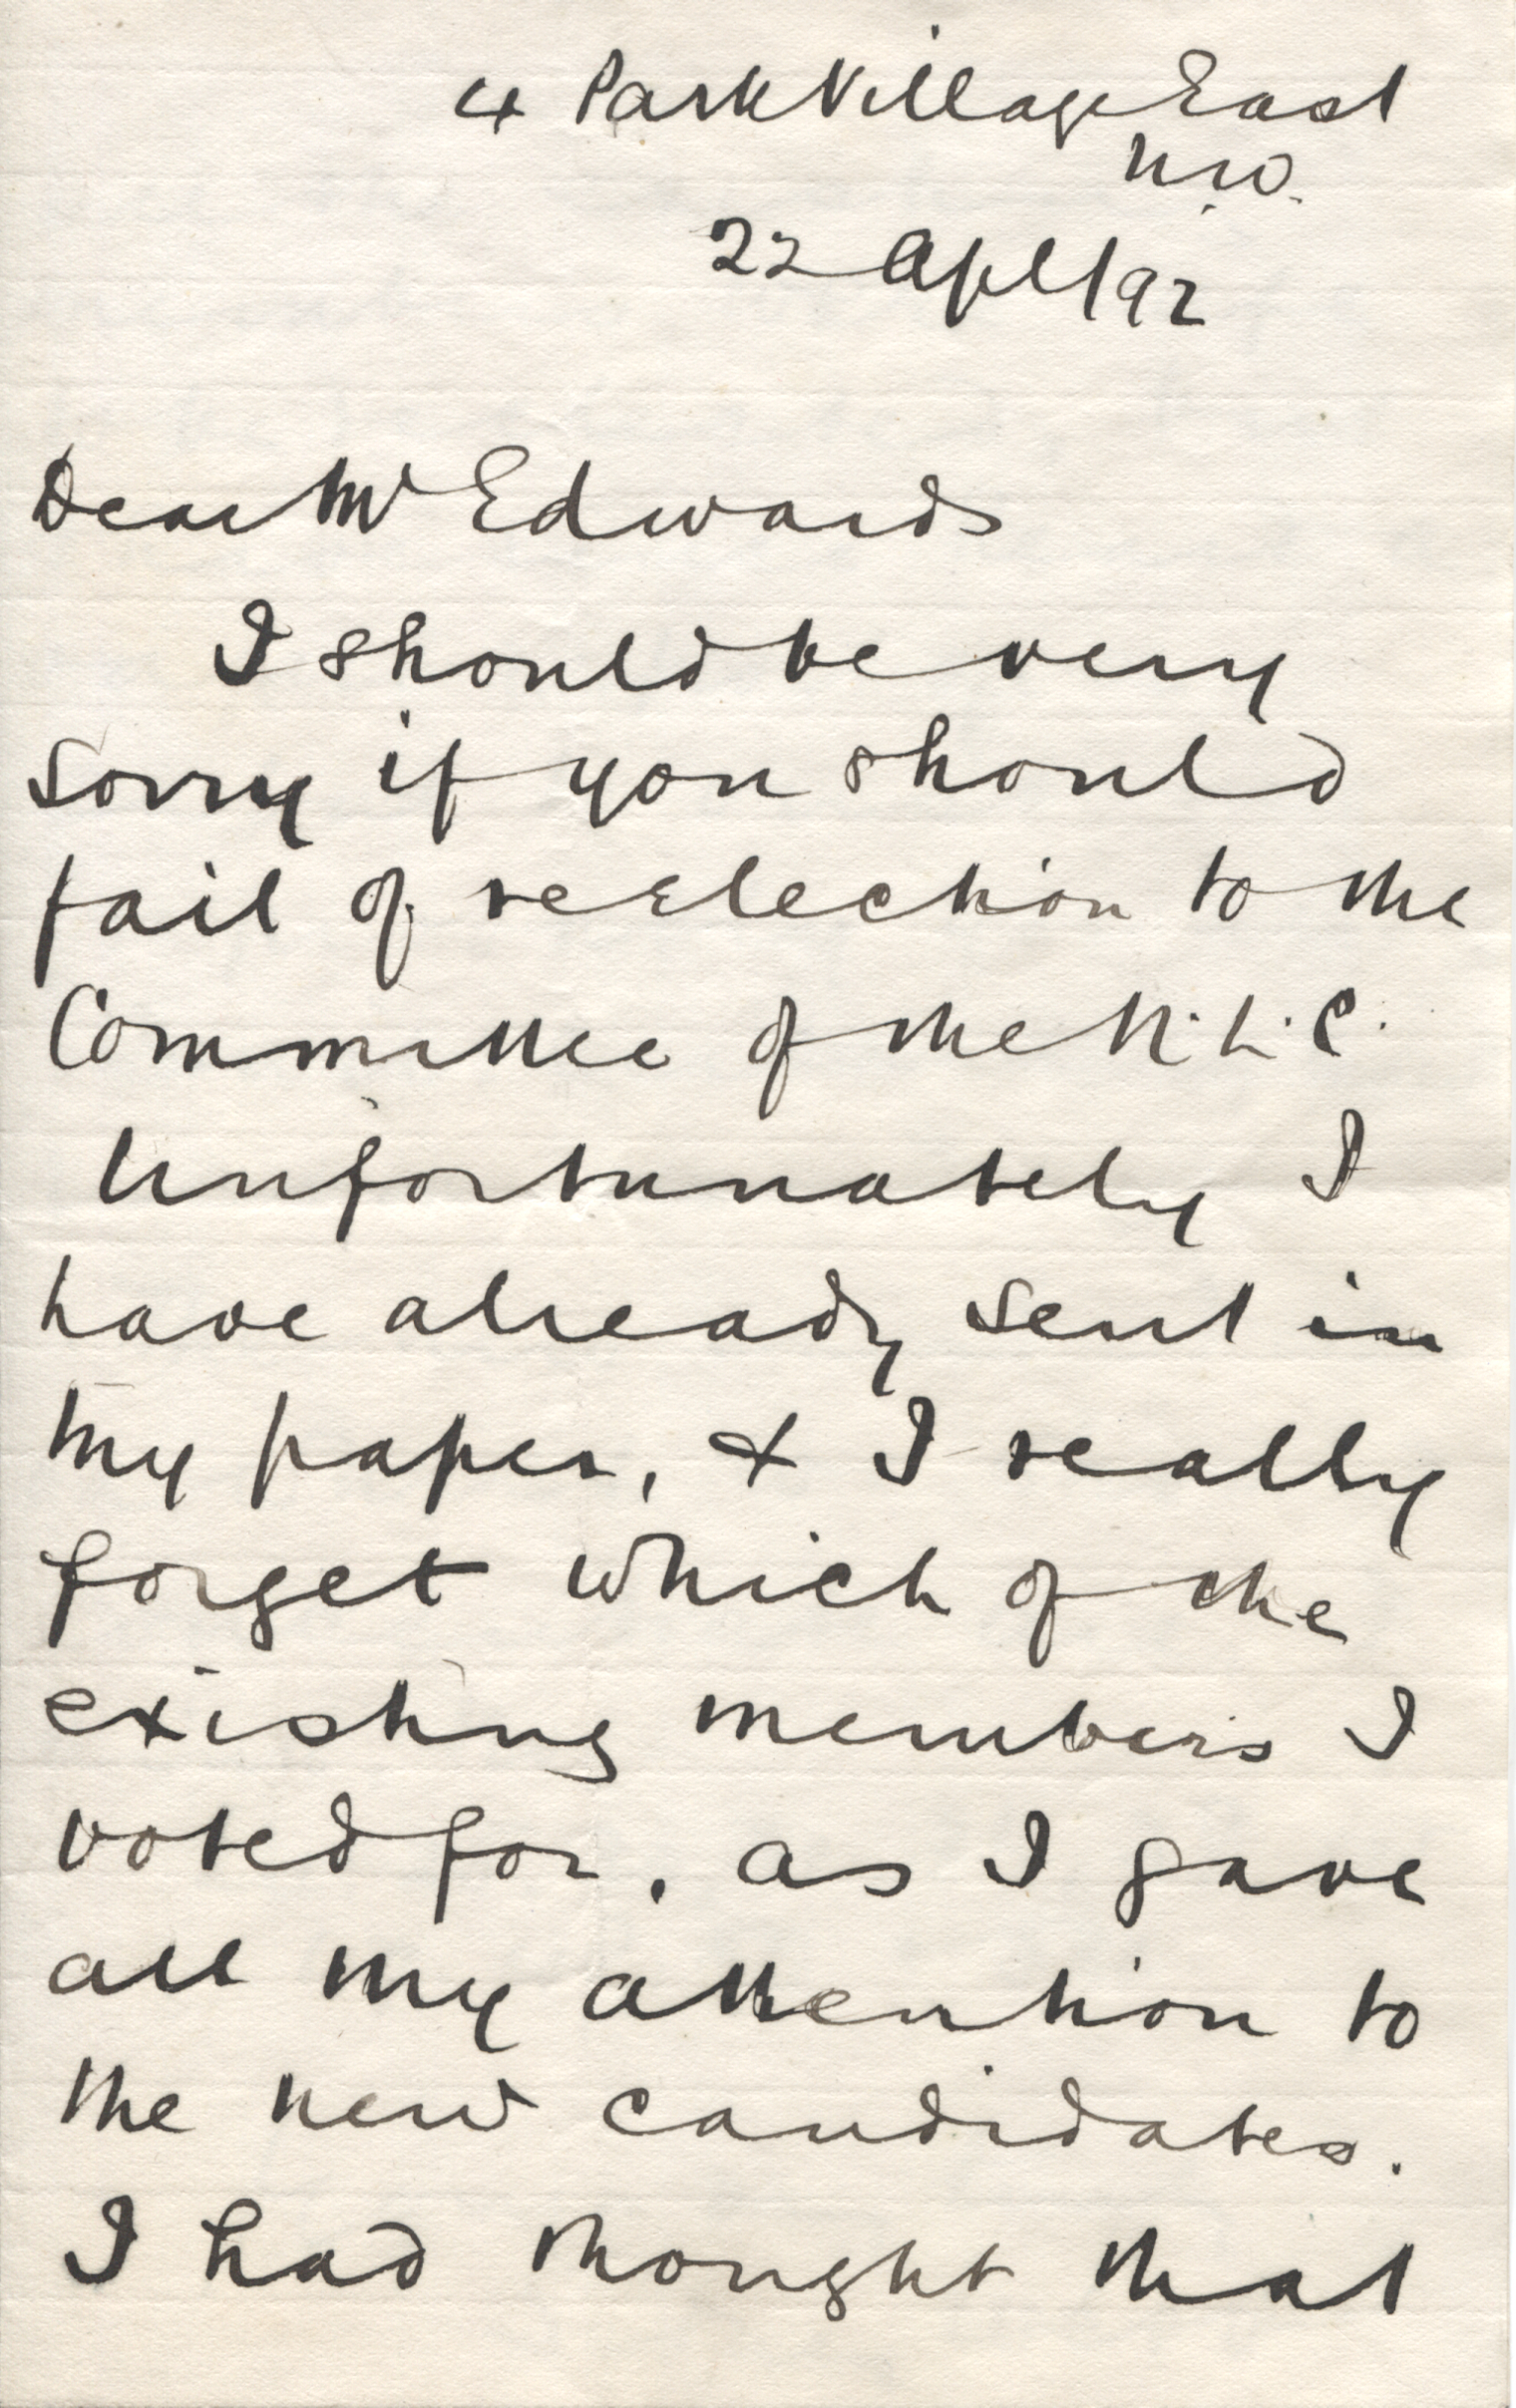 4 Park Village East
N.W.
22 Apl/92
Dear Mr Edwards
I should be very
sorry if you should
fail of reelection to the
Committee of the N.L.C.
Unfortunately I
have already sent in
my paper, & I really
forget which of the
existing members I
voted for, as I gave
all my attention to
the new candidates.
I had thought that